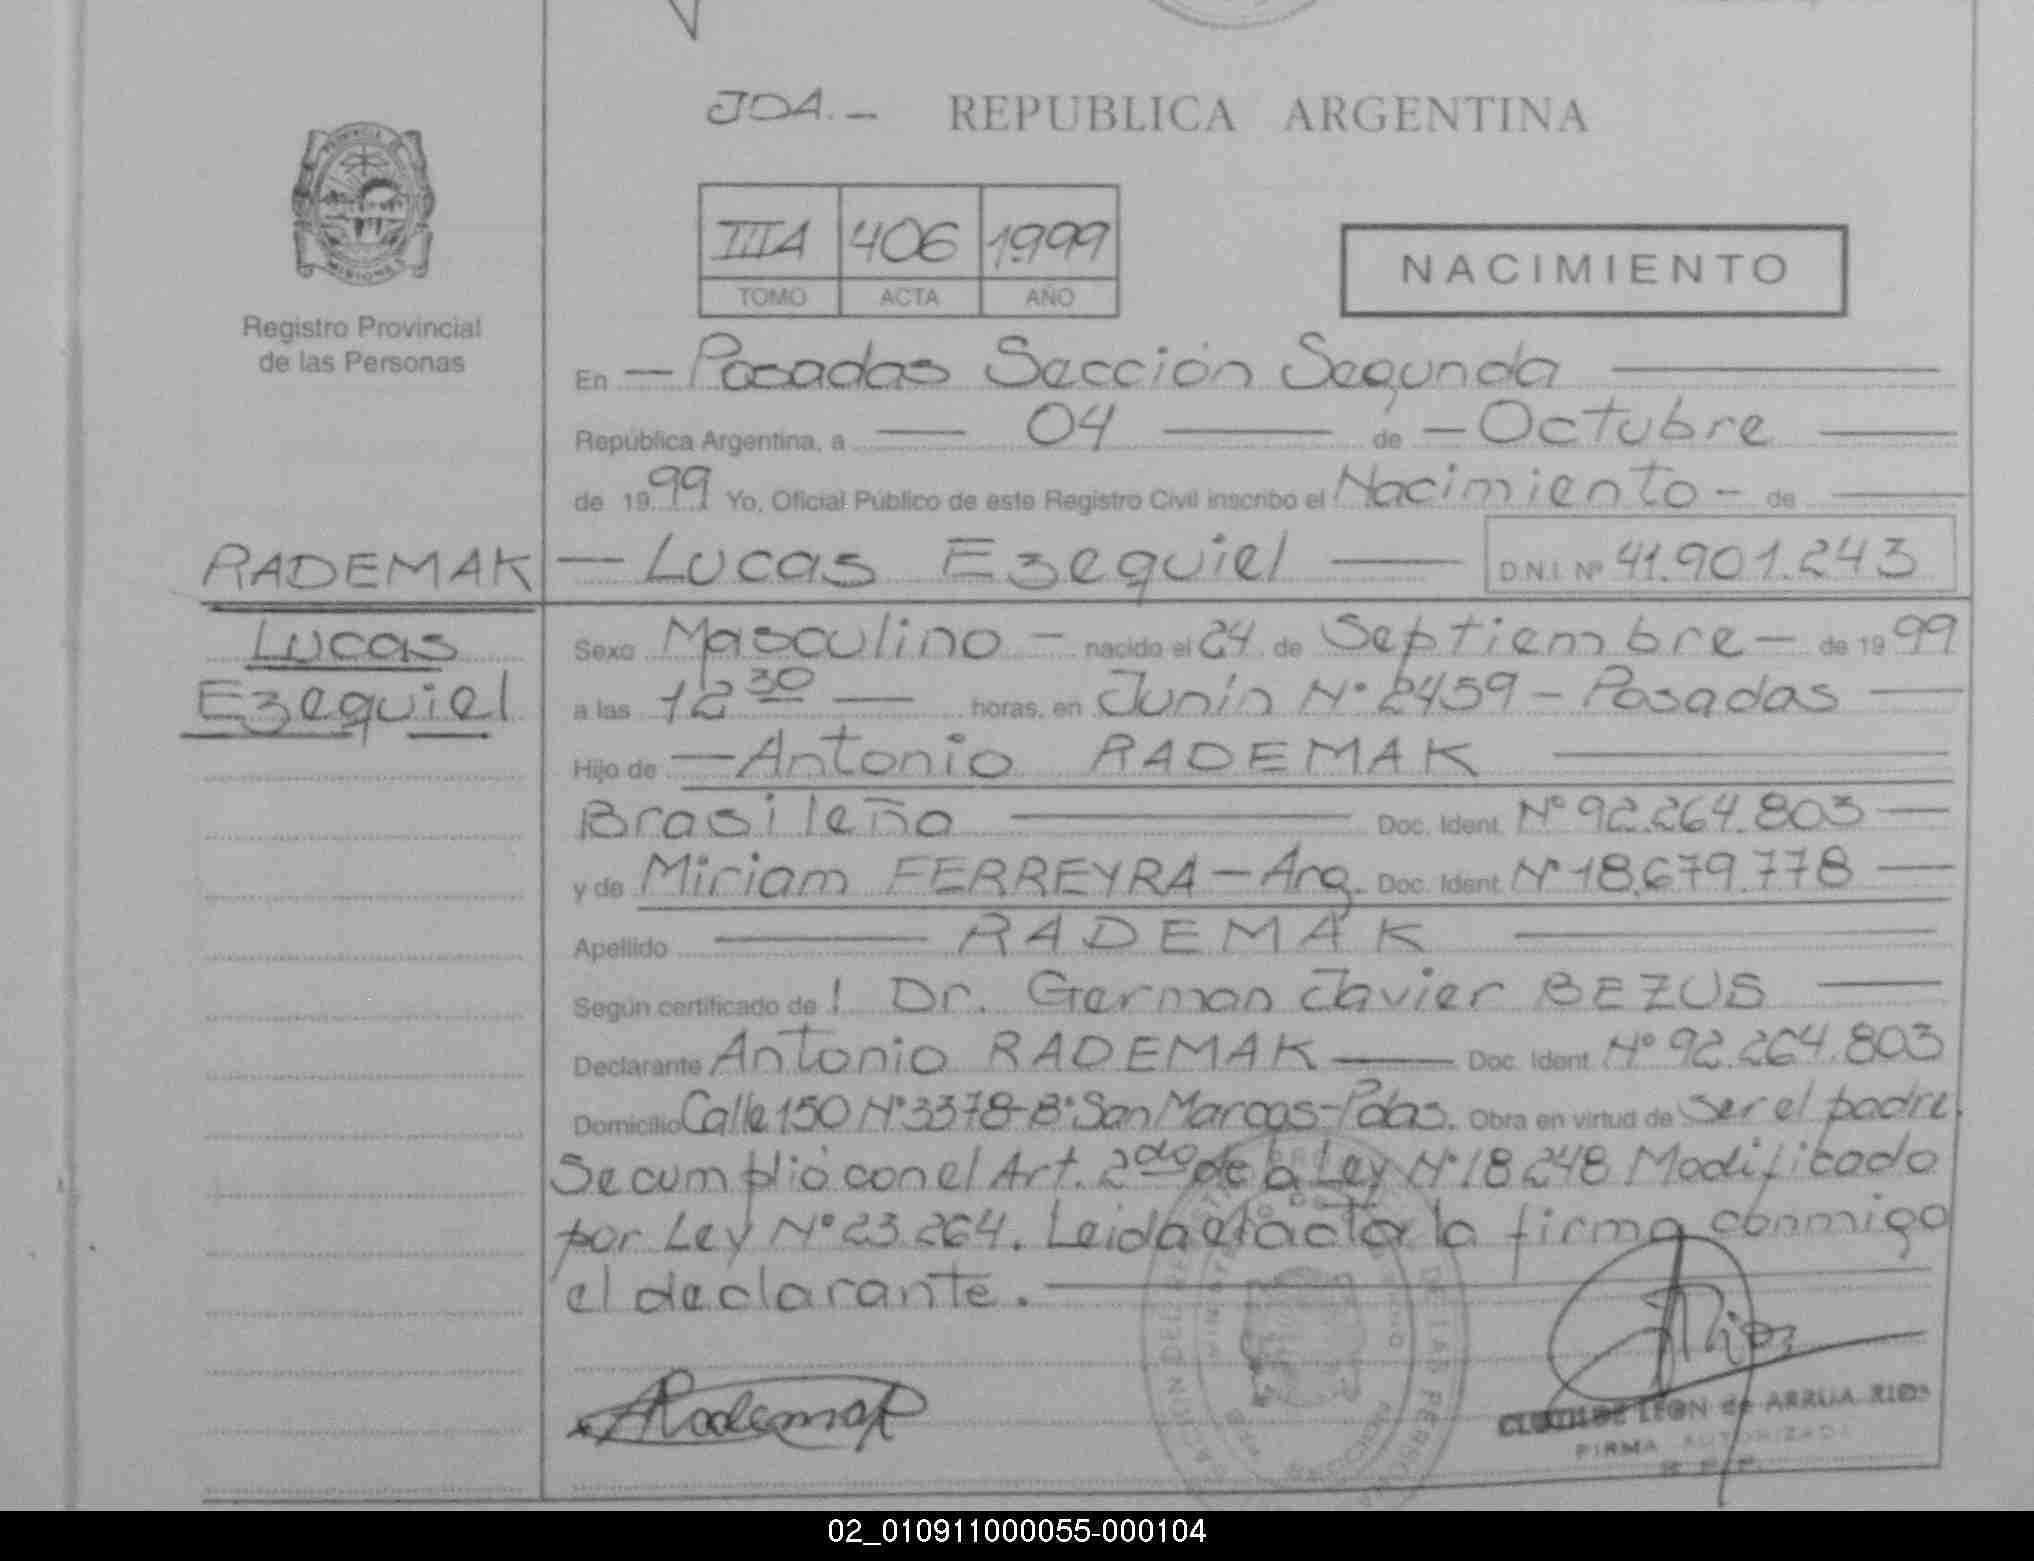 JDA.- REPUBLICA ARGENTINA
PROVINCIA
MISIONES
IIIA 406 1999
TOMO ACTA AÑO
NACIMIENTO
Registro Provincial
de las Personas
En — Posadas Sección Segunda —
República Argentina, a — 04 — de — Octubre —
de 1999 Yo, Oficial Público de este Registro Civil inscribo el Nacimiento - de —
RADEMAK — Lucas Ezequiel — D.N.I. Nº 41.901.243
Lucas
Ezequiel
Sexo Masculino — nacido el 24 de Septiembre — de 1999
a las 12 30 — horas, en Junín Nº 2459 - Posadas —
Hijo de — Antonio RADEMAK —
Brasileño — Doc. Ident. Nº 92.264.803 —
y de Miriam FERREYRA - Arg. Doc. Ident. Nº 18.679.778 —
Apellido — RADEMAK —
Según certificado de Dr. German Javier BEZUS —
Declarante Antonio RADEMAK — Doc. Ident. Nº 92.264.803
Domicilio Calle 150 Nº 3378-Bº San Marcos-Pdas. Obra en virtud de Ser el padre.
Se cumplió con el Art. 2do de la Ley Nº 18.248 Modificado
por Ley Nº 23.264. Leida el acta la firma conmigo
el declarante. —
ARademak
Rios
CLOTILDE LEON de ARRUA RIOS
FIRMA AUTORIZADA
02_010911000055-000104